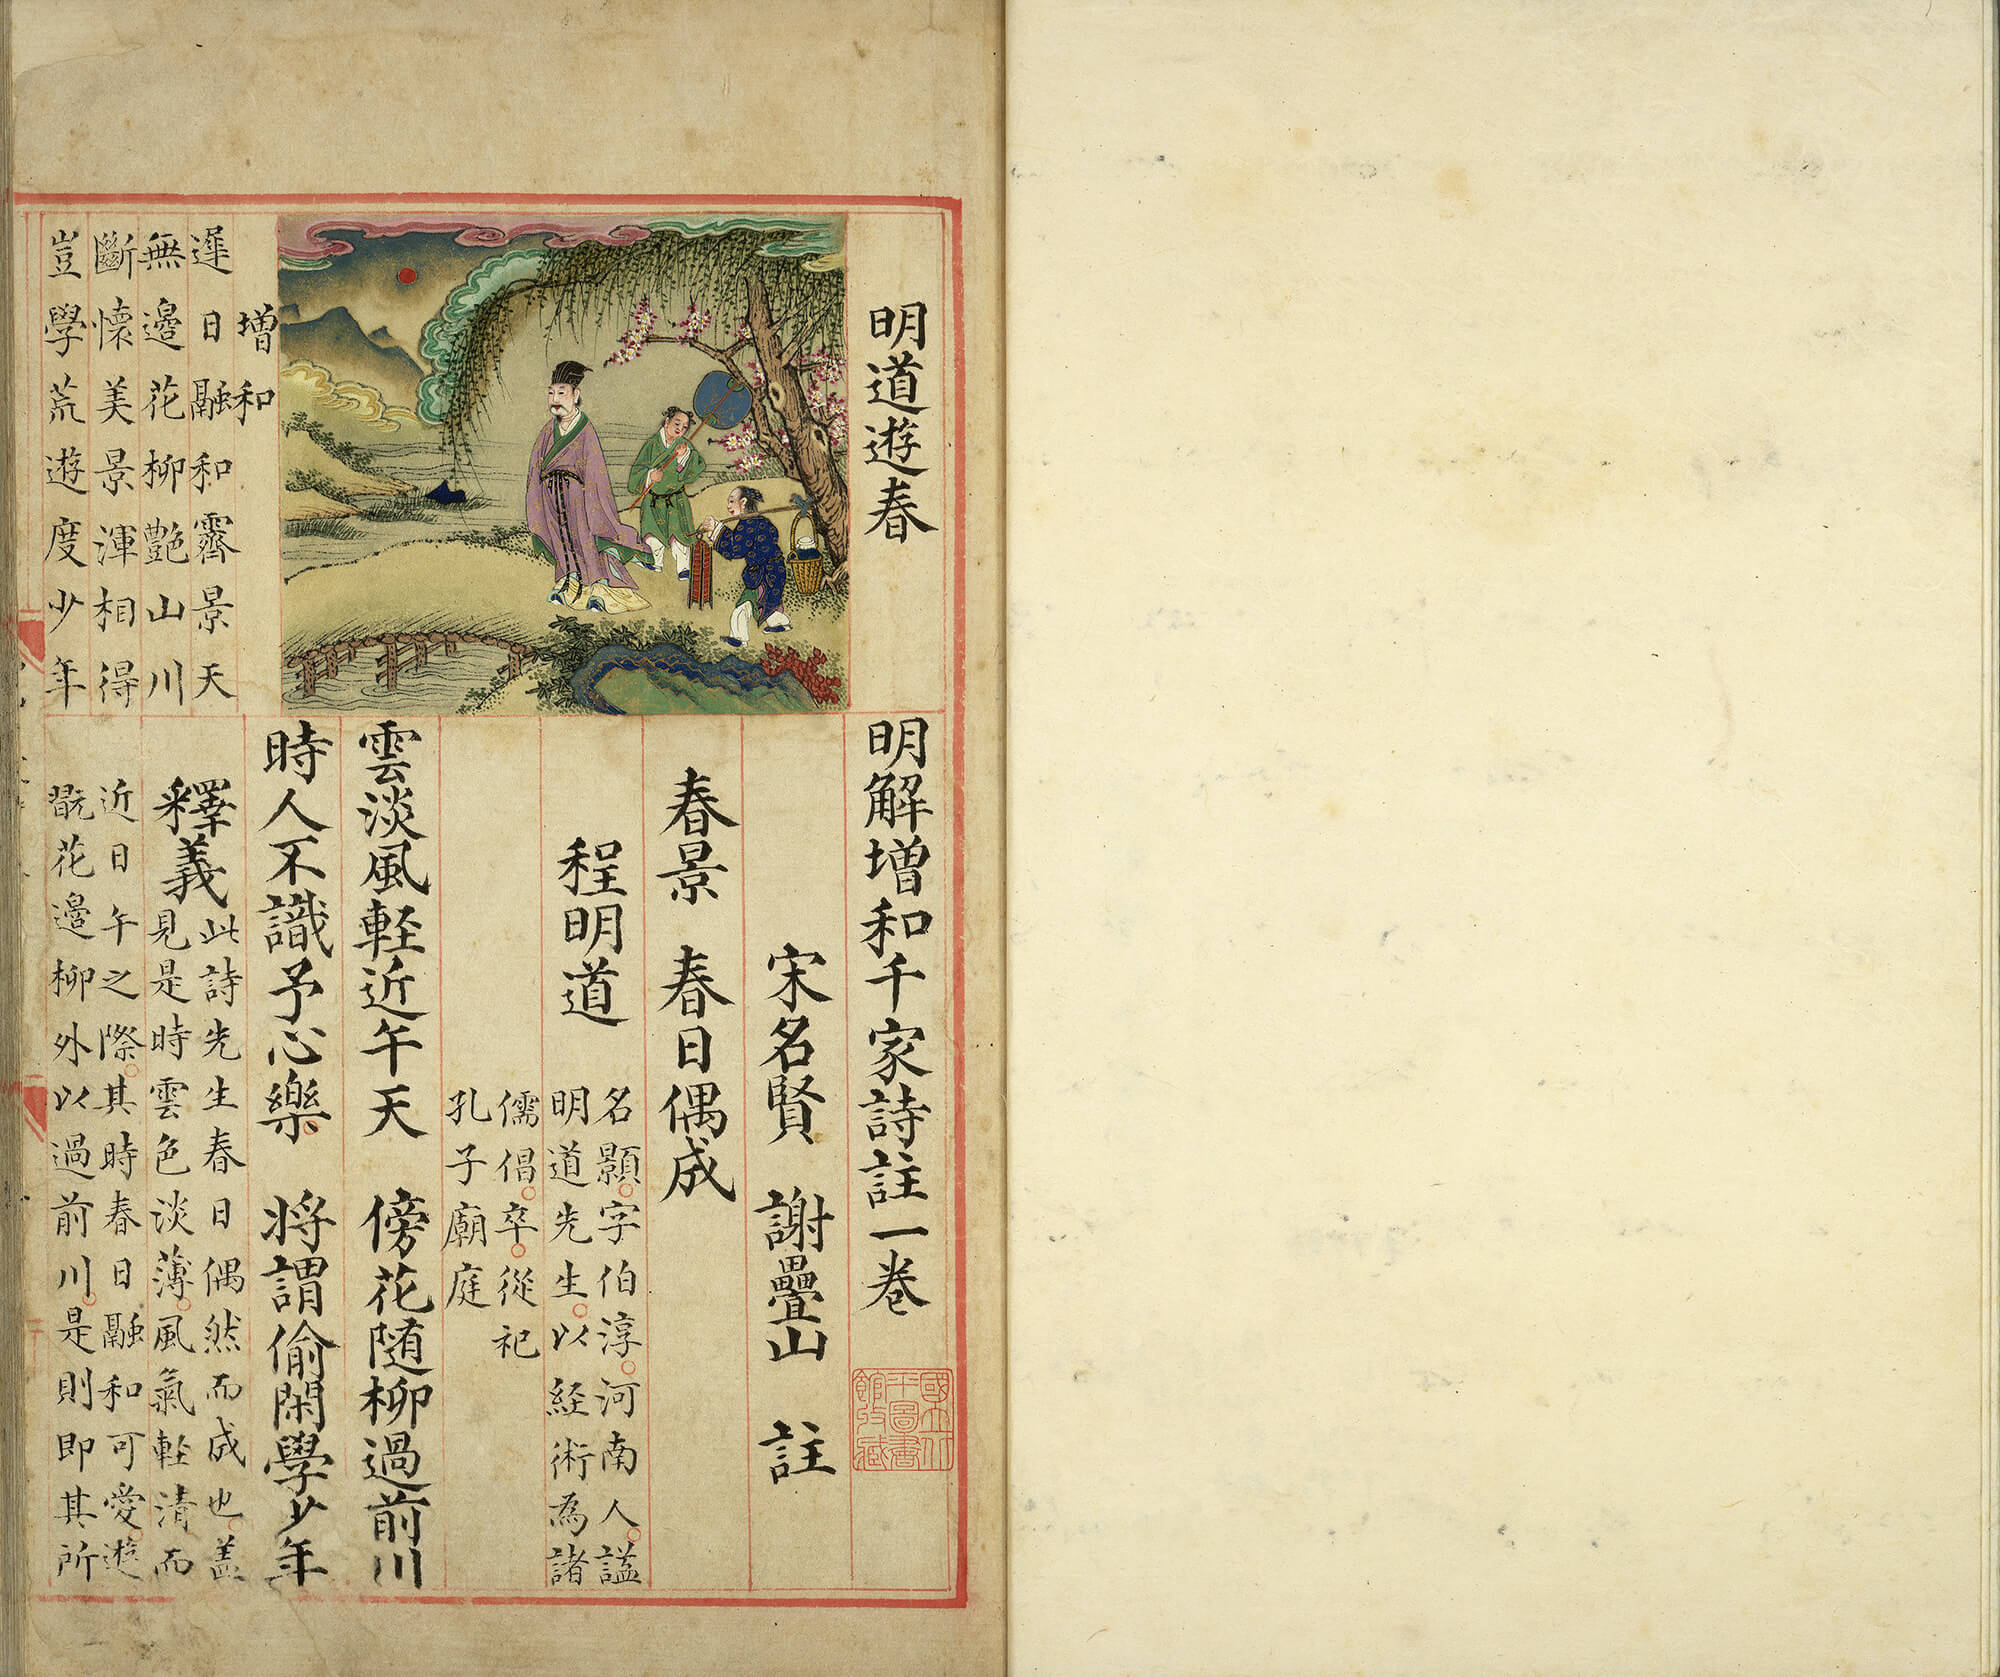 明道遊春
增和
遲日融和霽景天
無邊花柳艷山川
斷懷美景渾相得
豈學荒遊度少年
明解增和千家詩註一卷
宋名賢 謝疊山 註
春景 春日偶成
程明道
名顥字伯淳河南人謚
明道先生以経術為諸
儒倡卒從祀
孔子廟庭
雲淡風軽近午天 傍花随柳過前川
時人不識予心樂 将謂偷閑學少年
釋義
此詩先生春日偶然而成也盖
見是時雲色淡薄風氣軽清而
近日午之際其時春日融和可愛遊
翫花邊柳外以過前川是則即其所
國立北
平圖書
館收藏